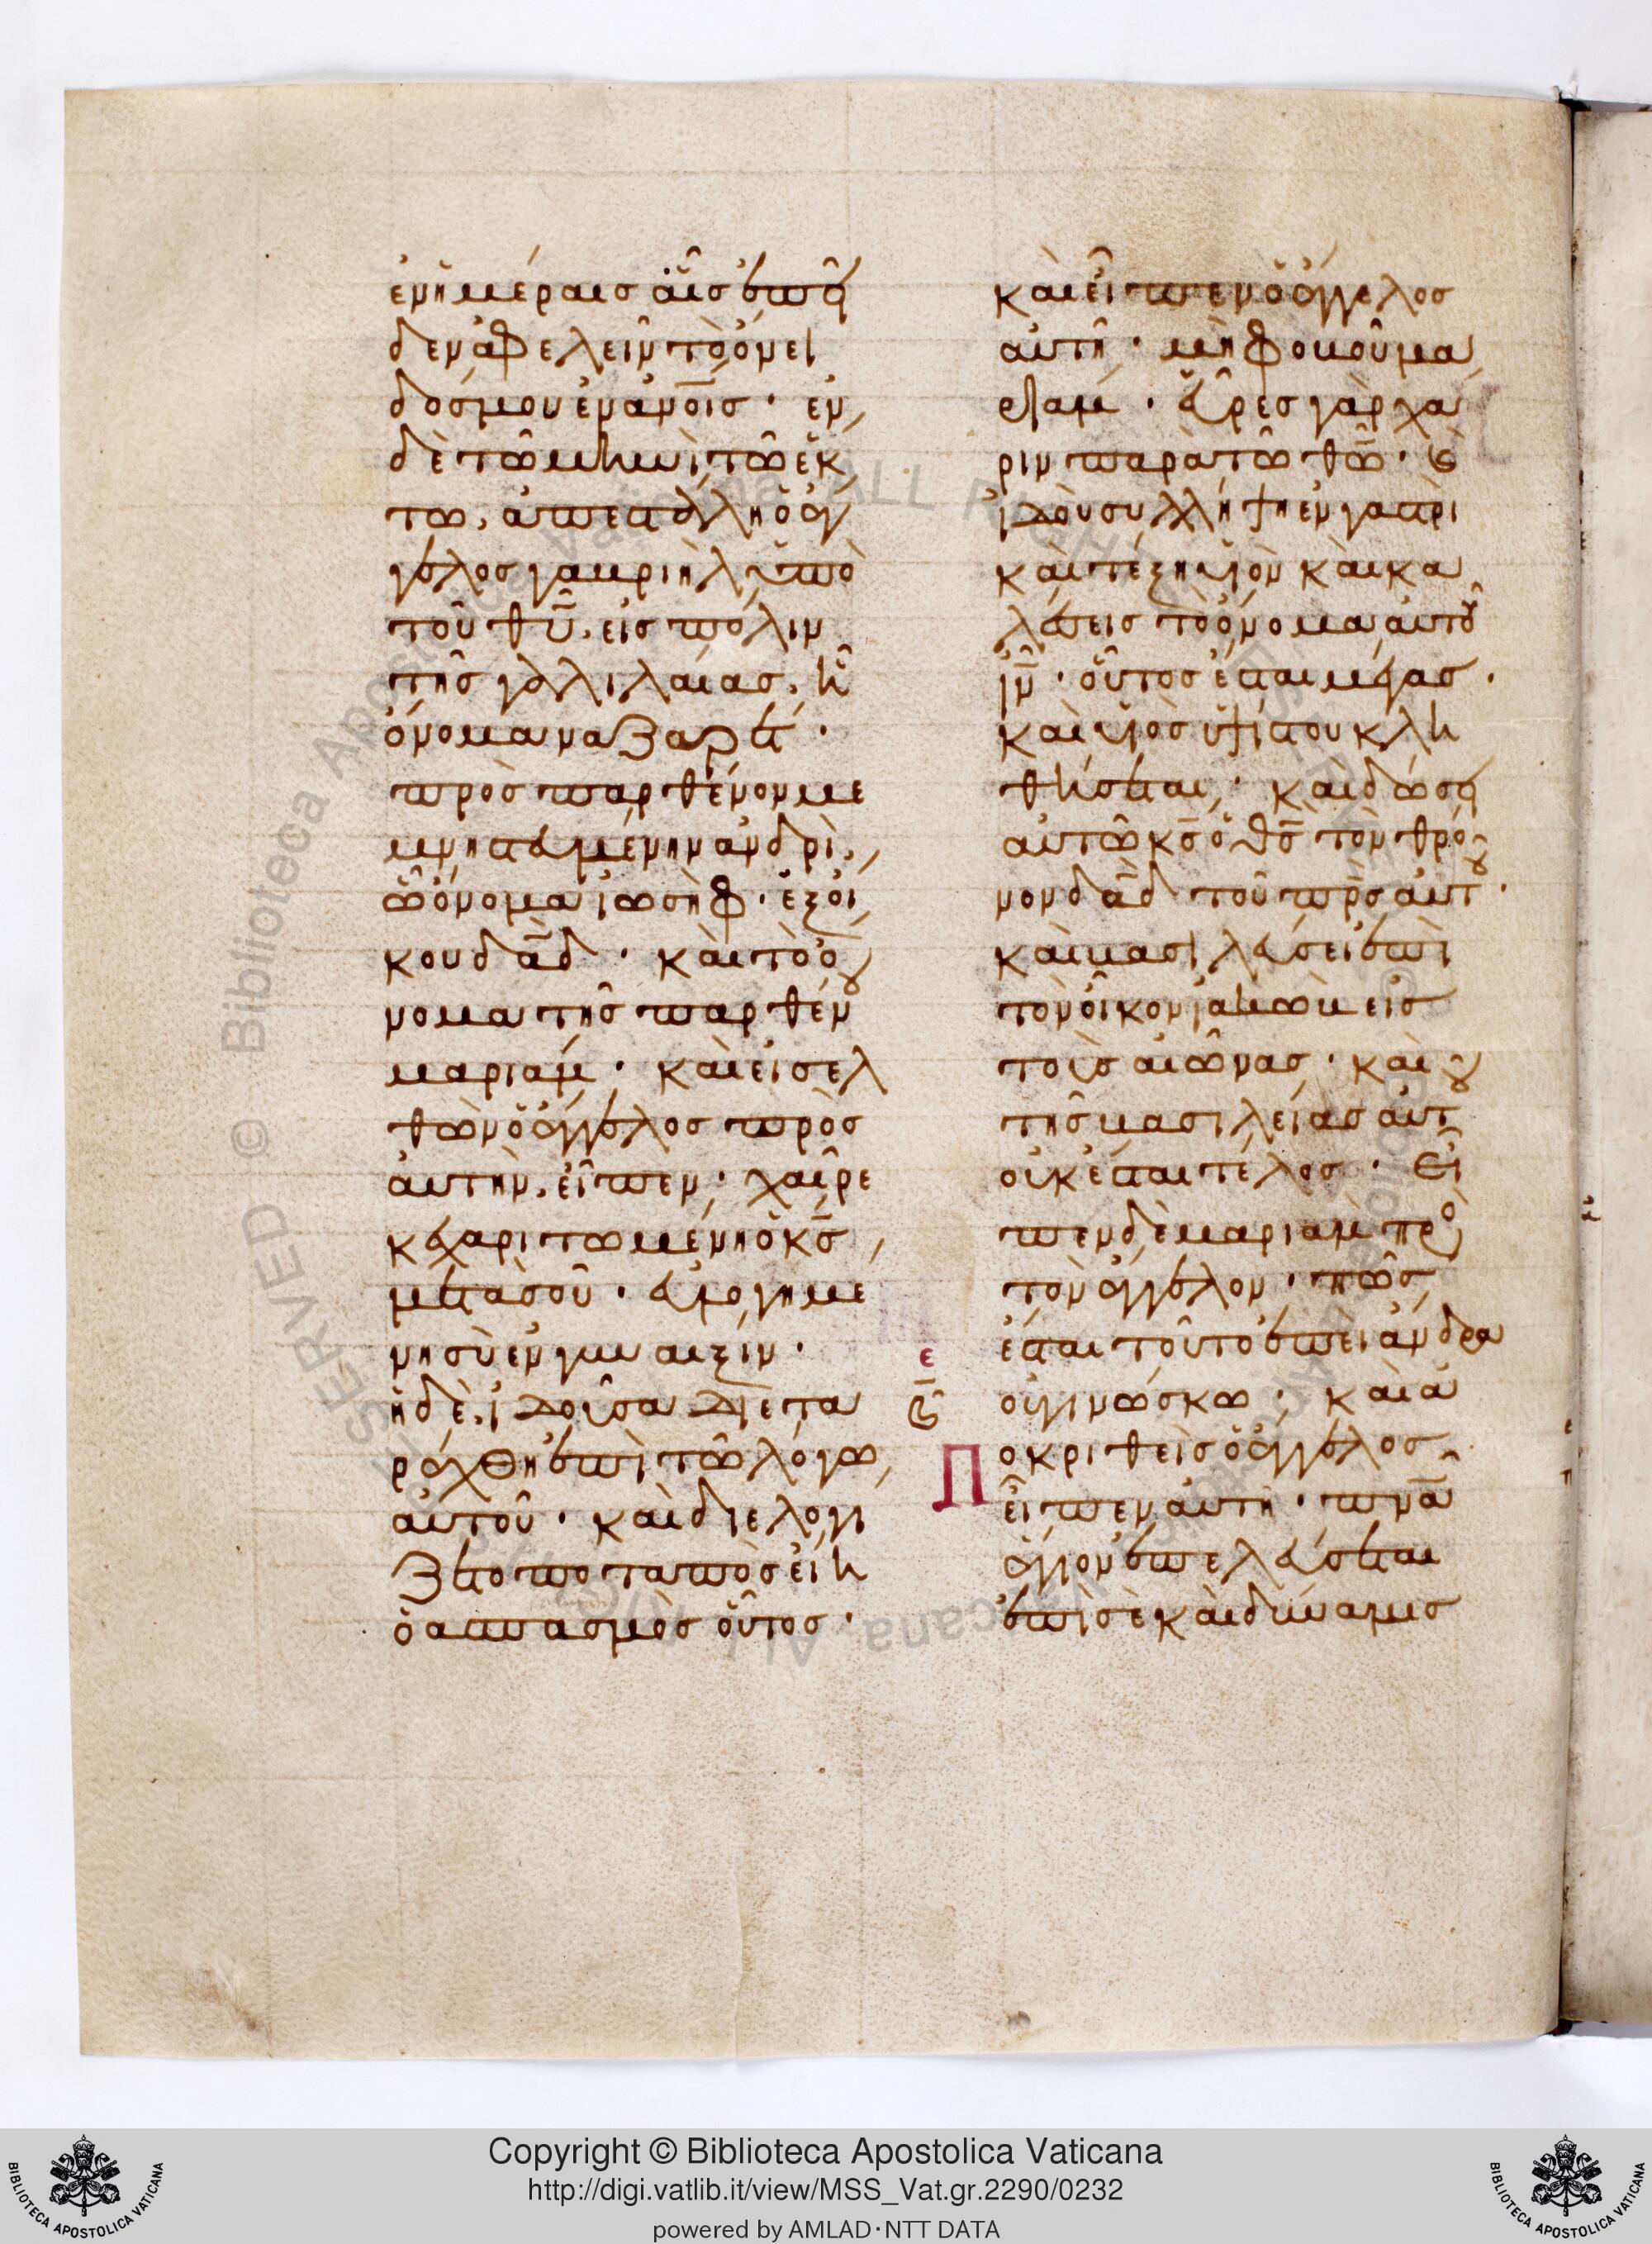 ἐν ἡμέραις αἷς ἐπεῖ
δεν ἀφελεῖν τὸ ὄνει
δός μου ἐν ἀν̅οις · ἐν
δὲ τῶ μηνὶ τῶ ἕκ
τω, ἀπεστάλη ὁ ἄγ
γελος γαβριὴλ ὑπὸ
τοῦ θ̅υ̅, εἰς πόλιν
τῆς γαλιλαίας, ἧ
ὄνομα ναζαρέτ ·
πρὸς παρθένον με
μνηστευμένην ἀνδρὶ,
ὧ ὄνομα ἰωσὴφ · ἐξ οἴ
κου δα̅δ · καὶ τὸ ὄ
νομα τῆς παρθέν
μαριάμ · καὶ εἰσελ
θὼν ὁ ἄγγελος πρὸς
αὐτὴν, εἶπεν · χαῖρε
κεχαριτωμένη ὁ κ̅ς̅
μετὰ σοῦ · εὐλογημέ
νη σὺ ἐν γυναιξίν ·
ἡ δὲ, ἰδοῦσα διετα
ράχθη ἐπὶ τῶ λόγω
αὐτοῦ · καὶ διελογί
ζετο ποταπὸς εἴη
ὁ ἀσπασμὸς οὗτος ·
καὶ εἶπεν ὁ ἄγγελος
αὐτῆ · μὴ φοβοῦ μα
ριάμ · εὗρες γὰρ χά
ριν παρὰ τῶ θ̅ω̅ · καὶ
ἰδοὺ συλλήψη ἐν γαστρὶ
καὶ τέξη υἱὸν καὶ κα
λέσεις τὸ ὄνομα αὐτοῦ
ι̅ν̅ · οὗτος ἔσται μέγας ·
καὶ υἱὸς ὑψίστου κλη
θήσεται · καὶ δώσει
αὐτῶ κ̅ς̅ ὁ θ̅ς̅ τὸν θρό
νον δα̅δ τοῦ πρ̅ς αὐτοῦ ·
καὶ βασιλεύσει ἐπὶ
τὸν οἶκον ἰακὼβ εἰς
τοὺς αἰῶνας · καὶ
τῆς βασιλείας αὐτοῦ
οὐκ ἔσται τέλος · Εἶ
πεν δὲ μαριὰμ πρὸς
τὸν ἄγγελον · πῶς
ἔσται τοῦτο ἐπεὶ ἄνδρα
ε̅
οὐ γινώσκω ; καὶ ἀ
Ποκριθεὶς ὁ ἄγγελος
εἶπεν αὐτῆ · πν̅α
ἅγιον ἐπελεύσεται
ἐπὶ σὲ καὶ δύναμις
Copyright © Biblioteca Apostolica Vaticana
http://digi.vatlib.it/view/MSS_Vat.gr.2290/0232
powered by AMLAD·NTT DATA
BIBLIOTECA APOSTOLICA VATICANA
BIBLIOTECA APOSTOLICA VATICANA